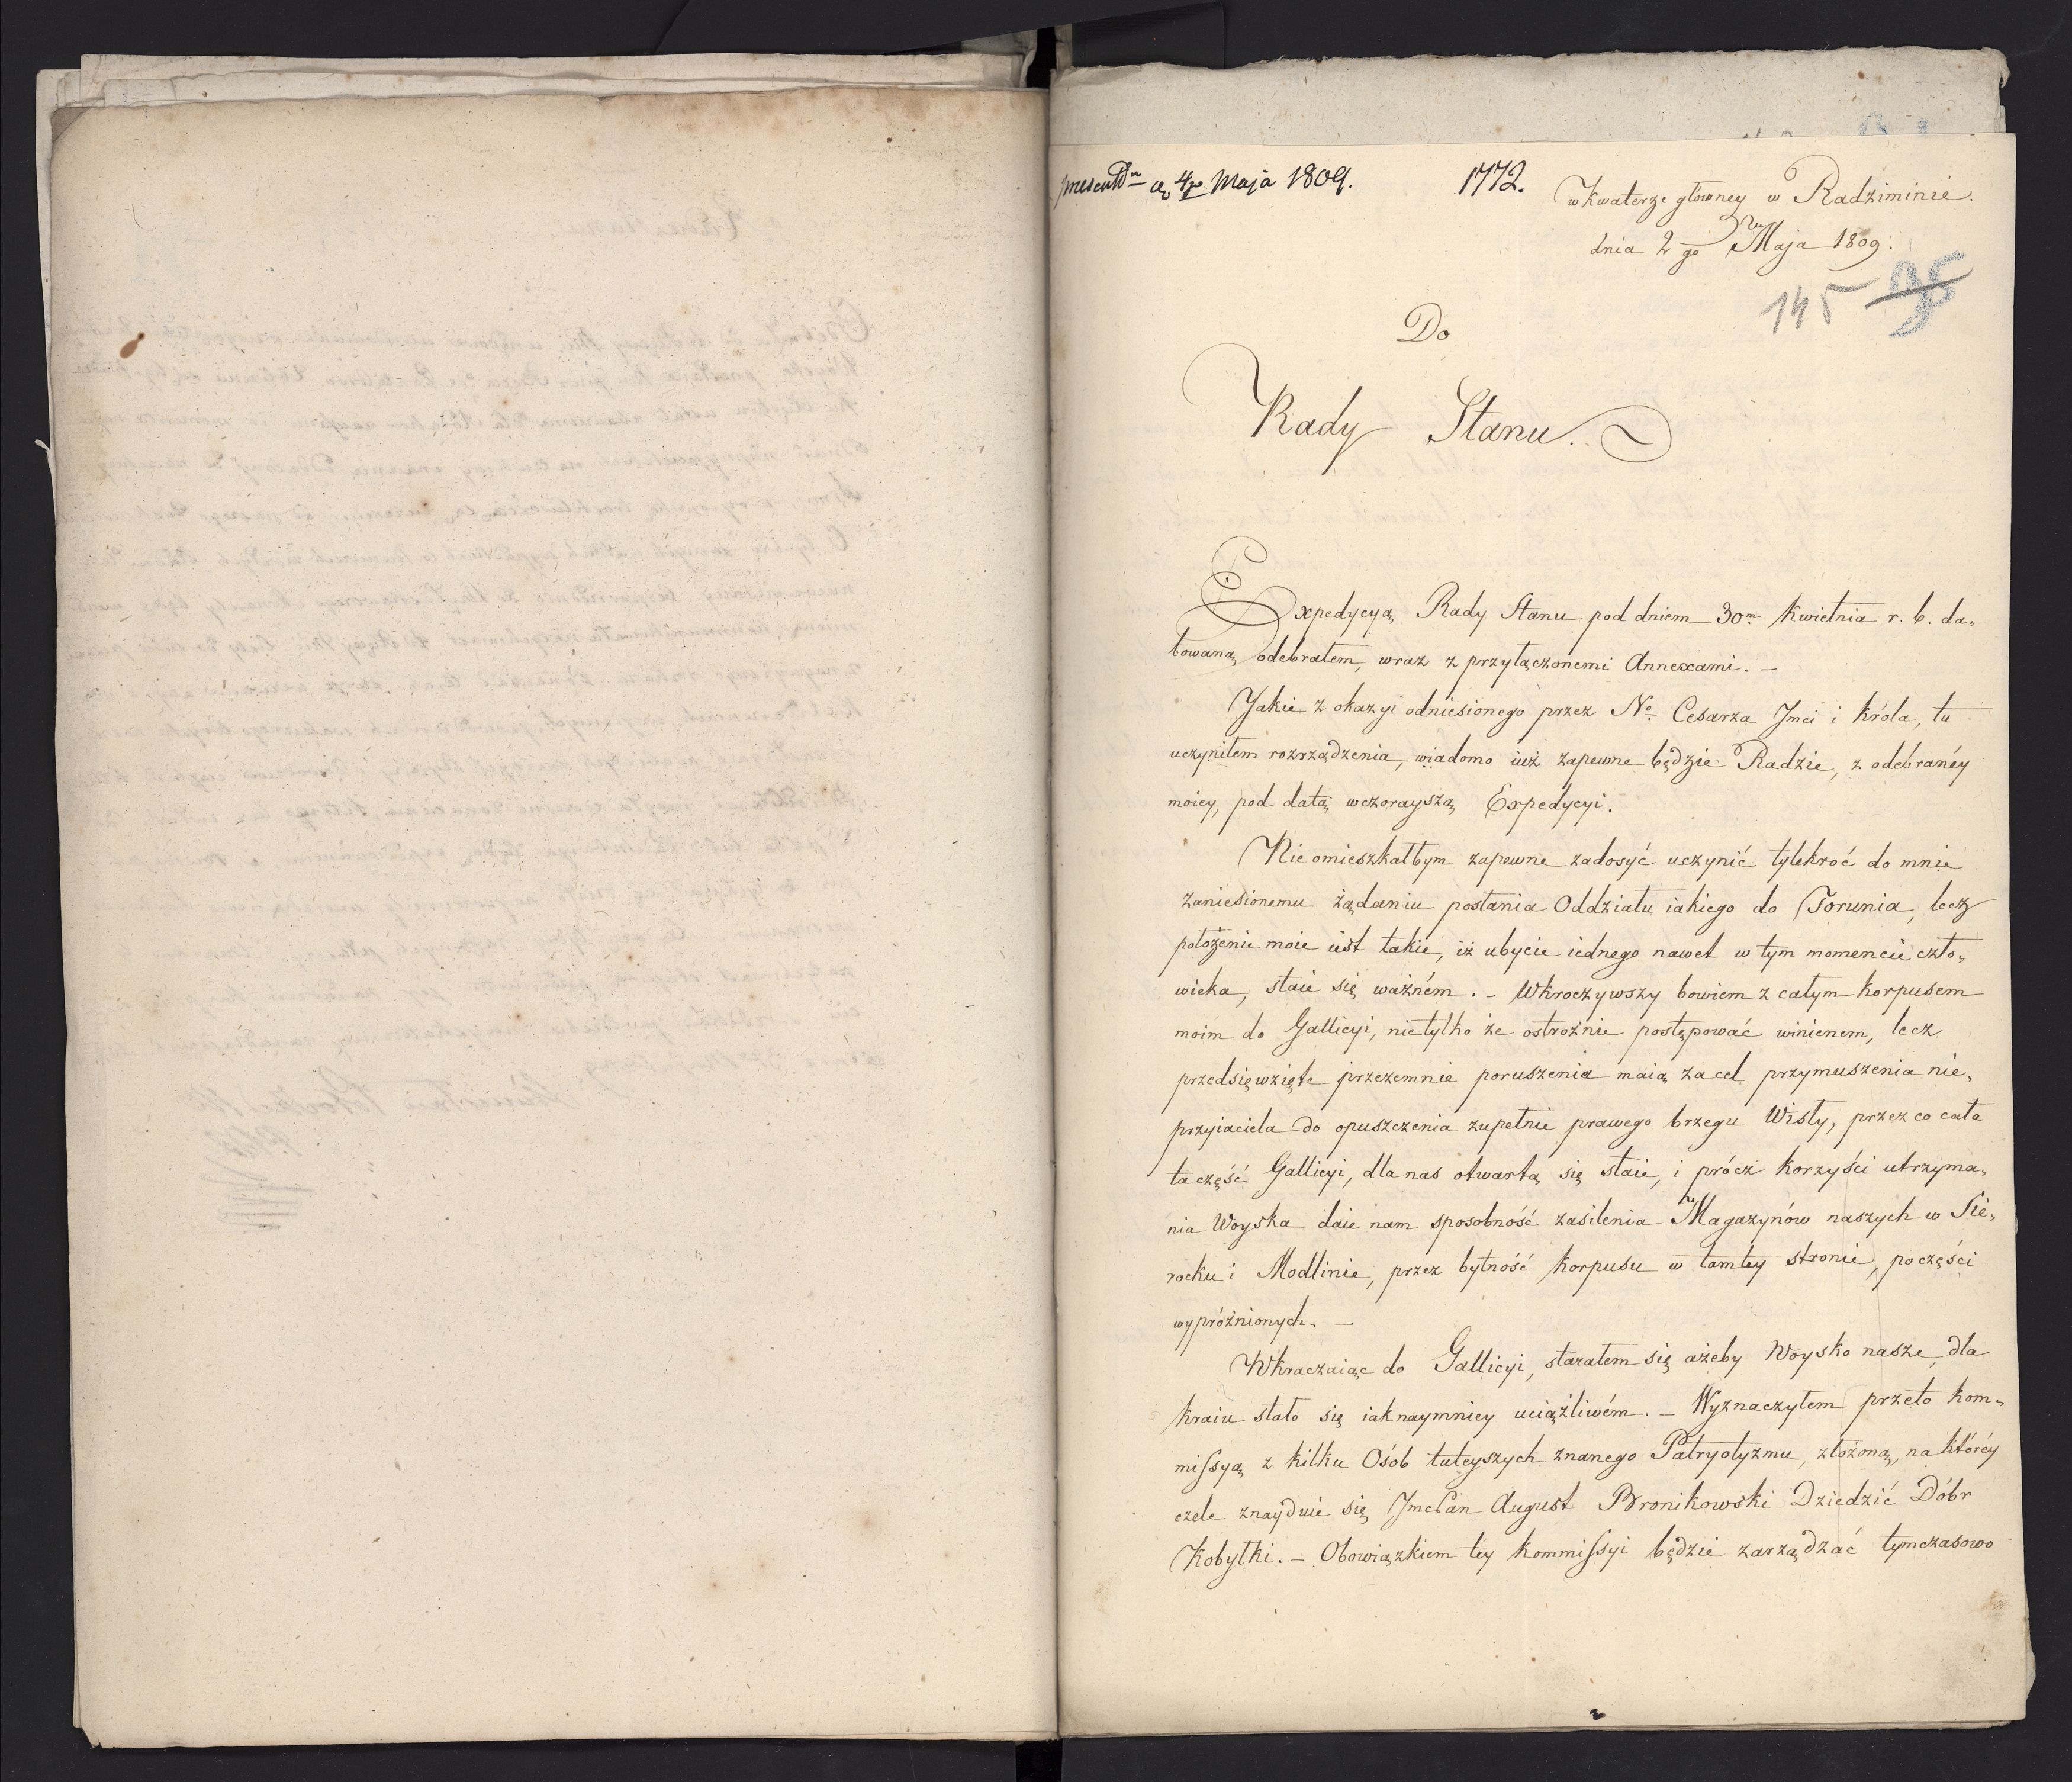 4go Maja 1809.
1772.
w Kwaterze głowney w Radziminie.
dnia 2go Maja 1809.
145
Do
Rady Stanu.
Expedycyą Rady Stanu pod dniem 30m Kwietnia r. b. da„
towaną odebrałem, wraz z przyłączonemi Annexami. –
Jakie z okazyi odniesionego przez Nº Cesarza Jmci i króla, tu
uczyniłem rozrządzenia, wiadomo iuż zapewne będzie Radzie, z odebranéy
moiey, pod datą wczorayszą Expedycyi.
Nie omieszkałbym zapewne zadosyć uczynić tylekroć do mnie
zaniesionemu żądaniu posłania Oddziału iakiego do Torunia, lecz
położenie moie iest takie, iż ubycie iednego nawet w tym momencie czło„
wieka, staie się ważném. – Wkroczywszy bowiem z całym korpusem
moim do Gallicyi, nietylko że ostrożnie postępować winienem, lecz
przedsięwzięte przezemnie poruszenia maią za cel przymuszenia nie„
przyiaciela do opuszczenia zupełnie prawego brzegu Wisły, przez co cała
ta część Gallicyi, dla nas otwartą się staie, i prócz korzyści utrzyma„
nia Woyska daie nam sposobność zasilenia Magazynów naszych w Sie„
rocku i Modlinie, przez bytność korpusu w tamtey stronie, po części
wypróżnionych. –
Wkraczaiąc do Gallicyi, starałem się ażeby Woysko nasze, dla
kraiu stało się iaknaymniey uciążliwém. – Wyznaczyłem przeto kom„
missyą z kilku Osób tuteyszych znanego Patryotyzmu, złożoną, na któréy
czele znayduie się JmcPan August Bronikowski Dziedzić Dóbr
Kobyłki. – Obowiązkiem tey kommissyi będzie zarządzać tymczasowo